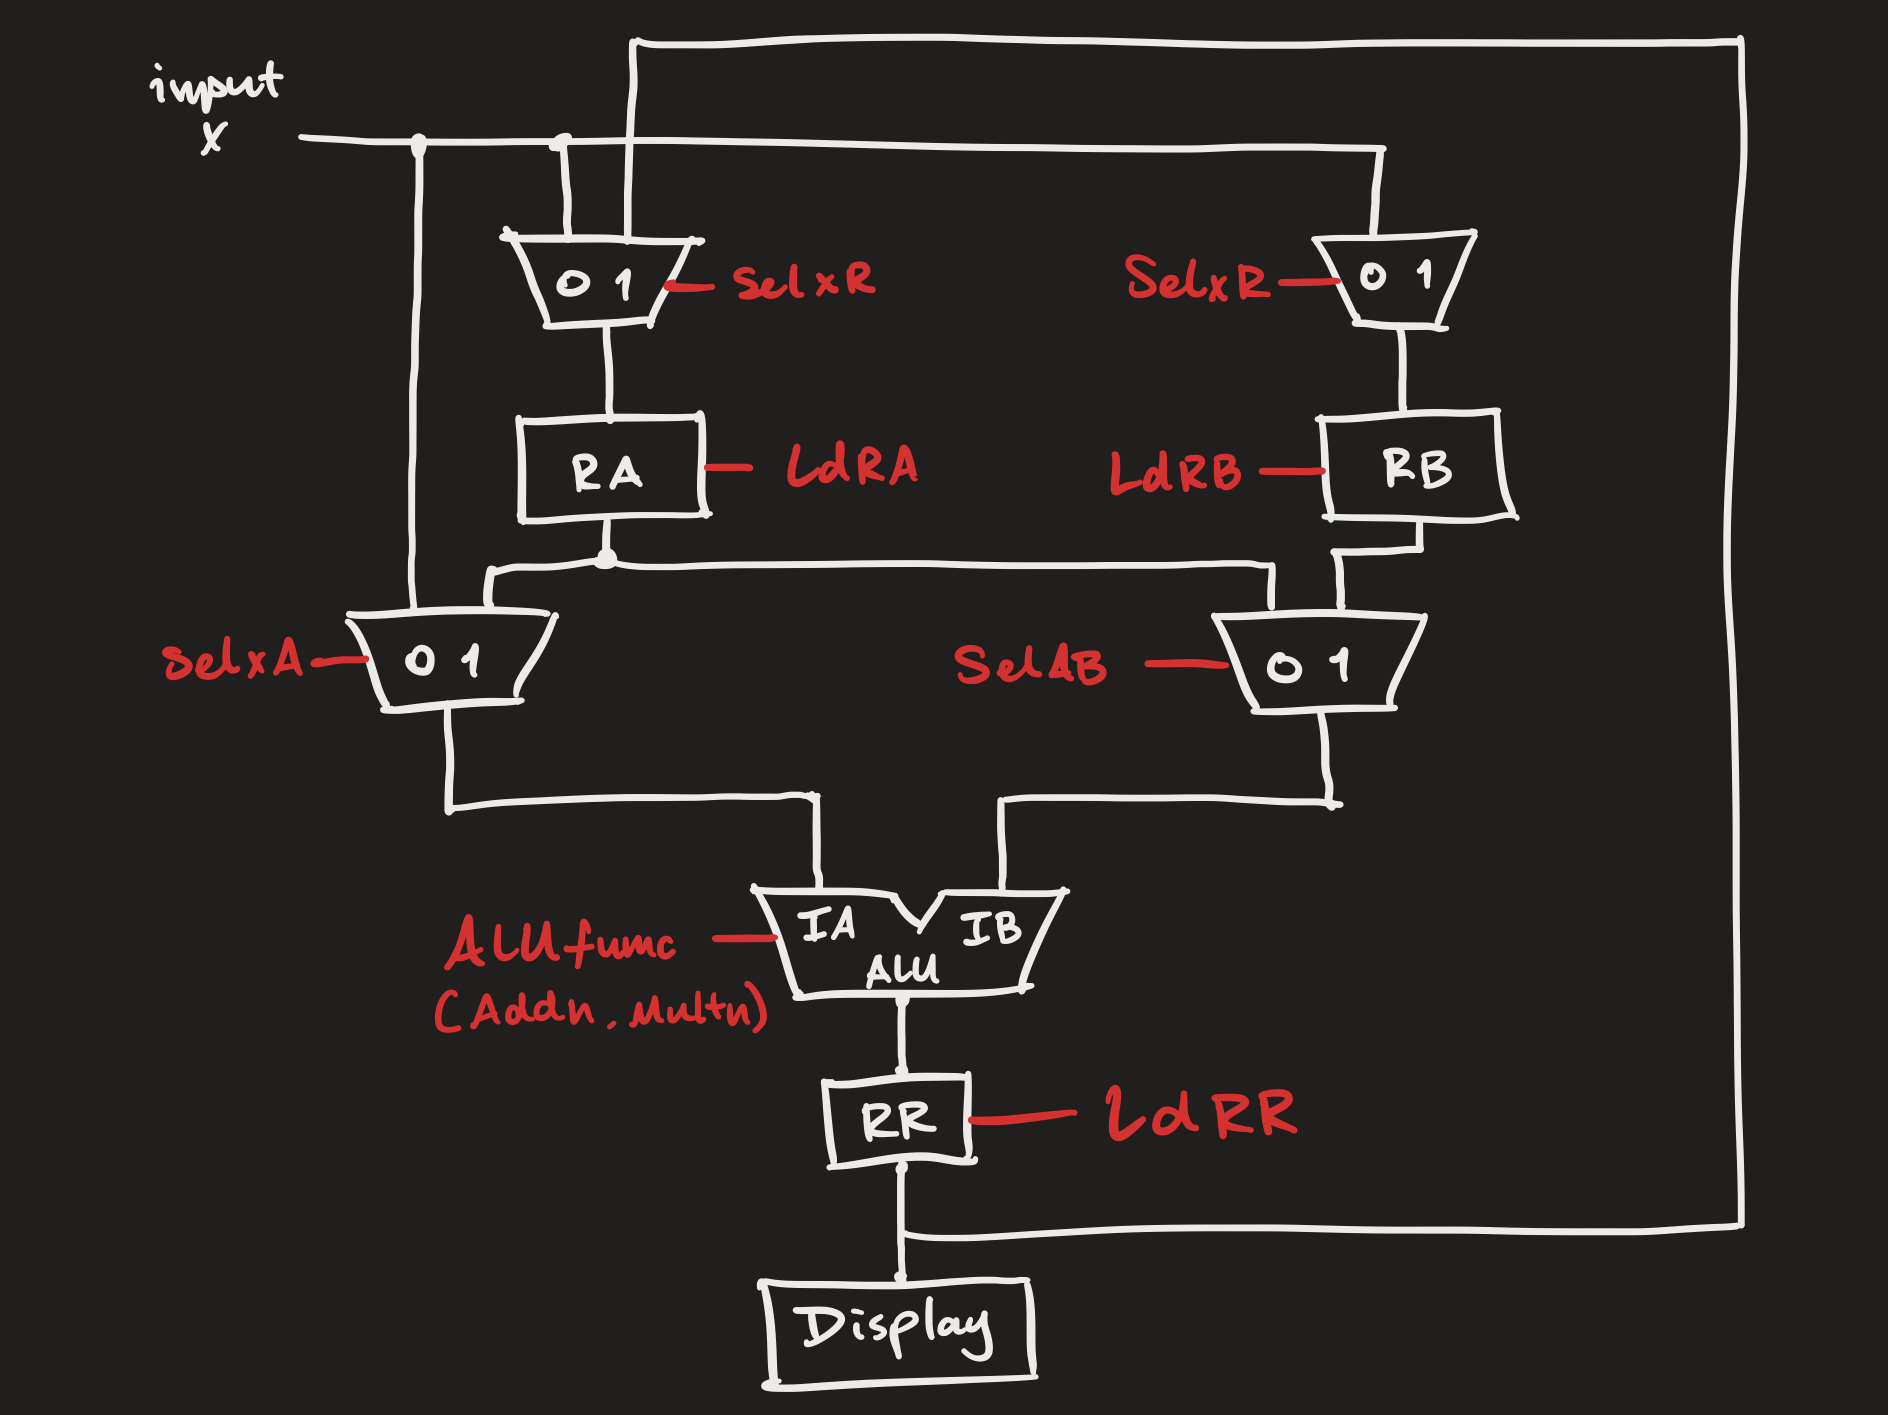 input
x
0 1
SelxR
SelxR
0 1
RA
LdRA
LdRB
RB
SelxA
0 1
SelAB
0 1
IA
IB
ALU
ALUfunc
(Addn, Multn)
RR
LdRR
Display